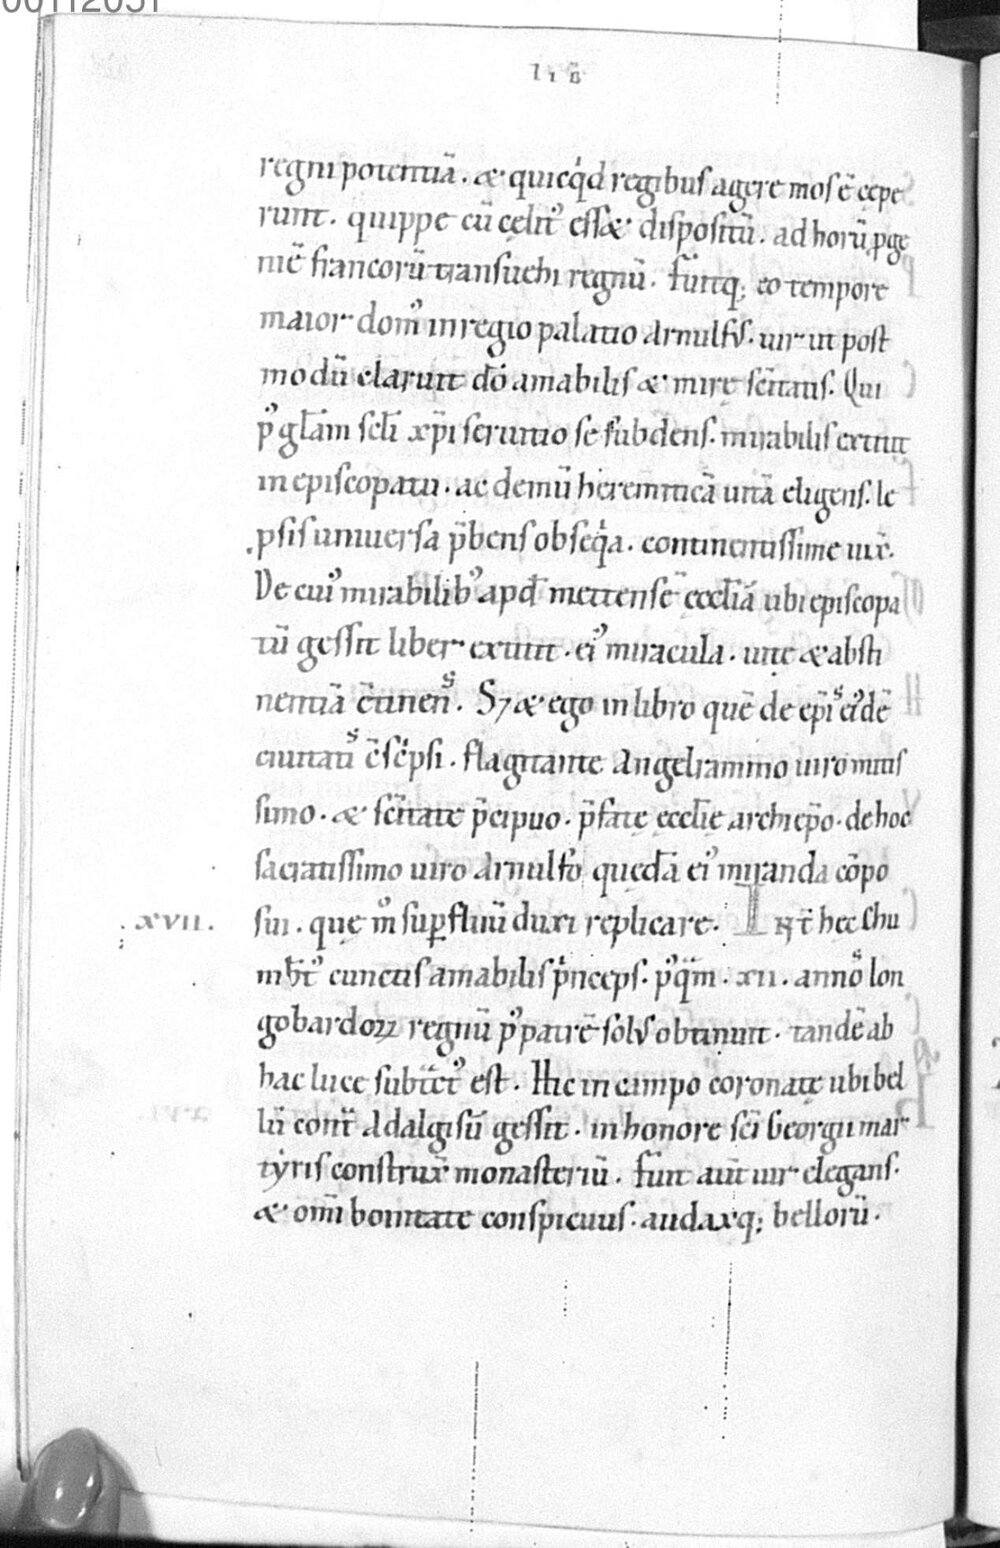 lib
regni potentiã. & quicq́d regibus agere mos ẽ cepe
runt. quippe cũ cęlit᾽ ess& dispositũ. ad horũ ꝓge
niẽ francorũ transuehi regnũ. fuitq; eo tempore
maior dom᾽ in regio palatio Arnulfus. uir ut post
modũ claruit dõ amabilis & mirę scĩtatis. Qui
p᾽ gl̃am scłi xp̃i seruitio se subdens. mirabilis extitit
in episcopatu. ac demũ heremiticã uitã eligens. le
psis uniuersa p̃bens obseq̇a. continentissime uix̃.
De cui᾽ mirabilib᾽ apđ mettensẽ ęcclã ubi episcopa
tũ gessit liber extitit. ei᾽ miracula. uitę & absti
nentiã c̃tinens. S7 & ego in libro quẽ de ep̃is ei᾽dẽ
ciuitatis c̃sc̃psi. flagitante Angelrammo uiro mitis
simo. & sc̃itate p̃cipuo. p̃fatę ecclię archiep̃o. de hoc
sacratissimo uiro Arnulfo quędã ei᾽ miranda cõpo
xvii. sui. quę m̊ suꝑfluũ duxi replicare. Int̃ hec Chu
nib̃t᾽ cunctis amabilis p̃nceps. p᾽q̃m. xii. annos lon
gobardoꝝ regnũ p᾽ patrẽ solus obtinuit. tandẽ ab
hac luce subt̃ct᾽ est. Hic in campo coronatę ubi bel
lũ cont̃ Adalgisũ gessit. in honore sc̃i Georgii mar
tẏris construx̃ monasteriũ. fuit aũt uir elegans.
& om̃i bonitate conspicuus. audaxq; bellorũ.